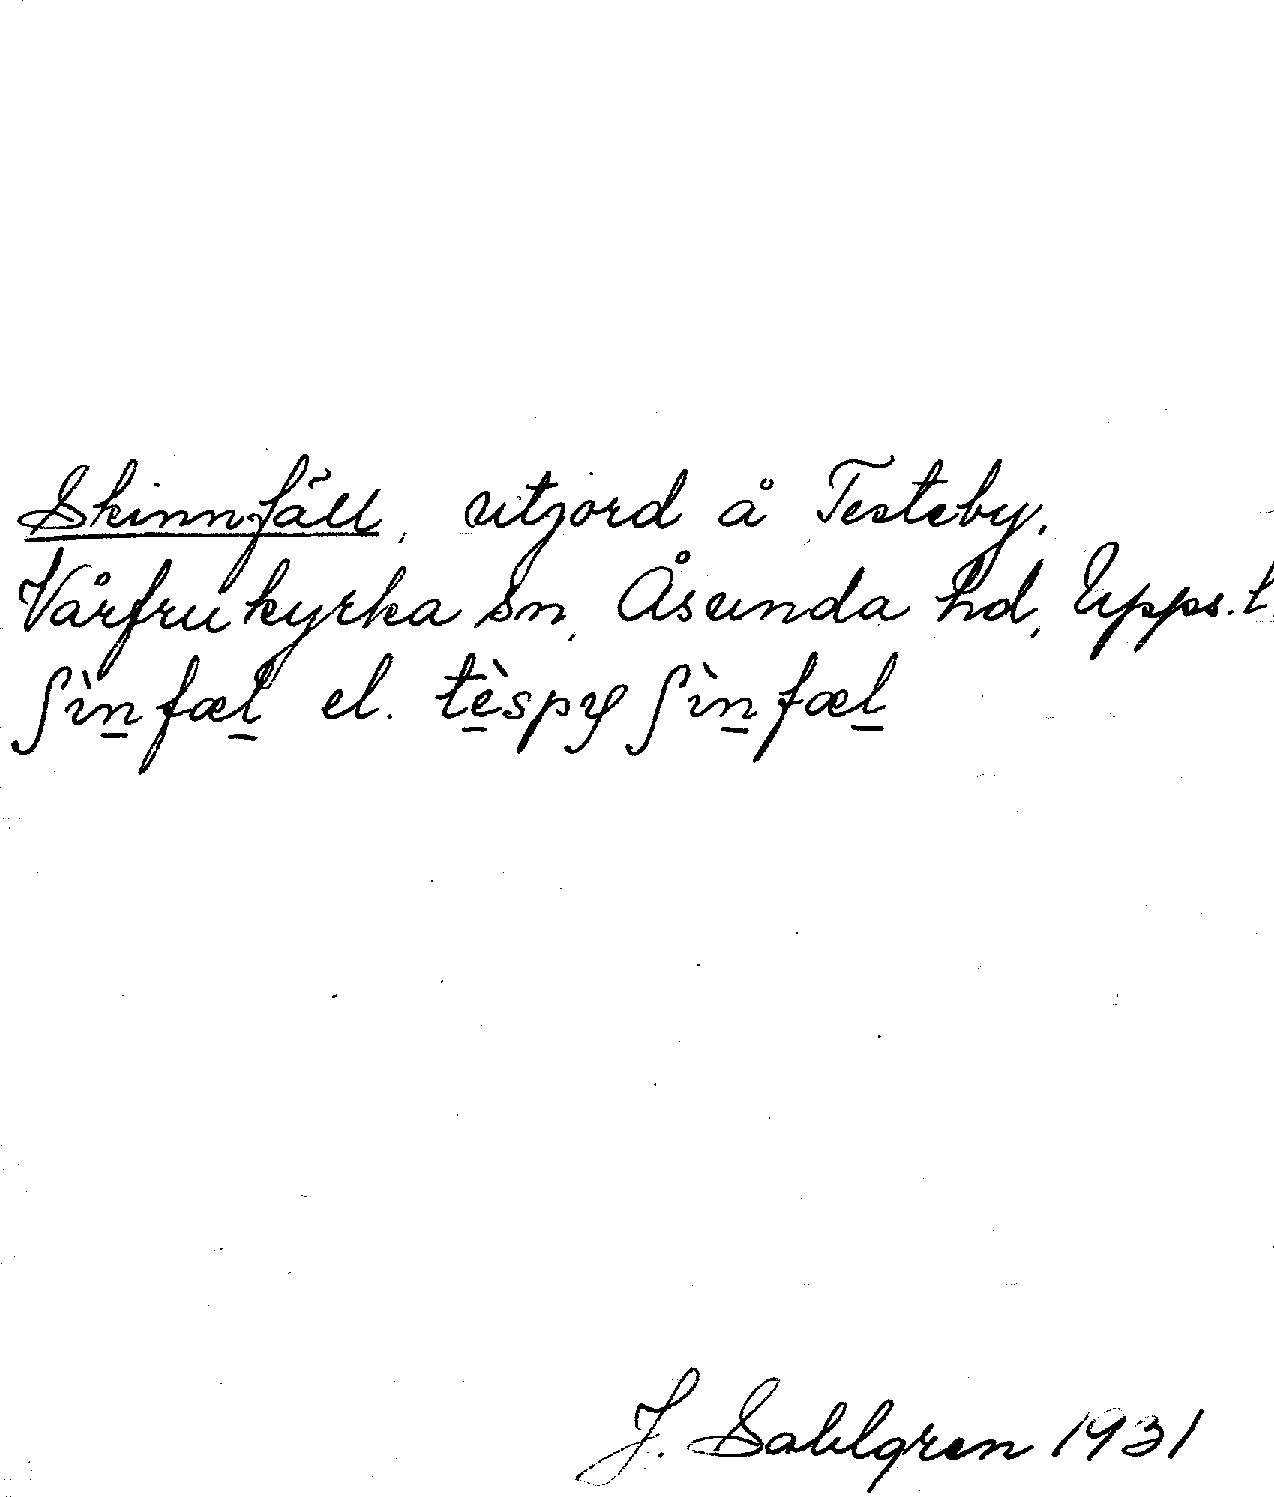 Skinnfäll, utjord å Testeby,
Vårfrukyrka sn, Åsunda hd, Upps. l
ʃìn̲fæl̲ el. tè̲spyʃìn̲fæl̲
J. Sahlgren 1931